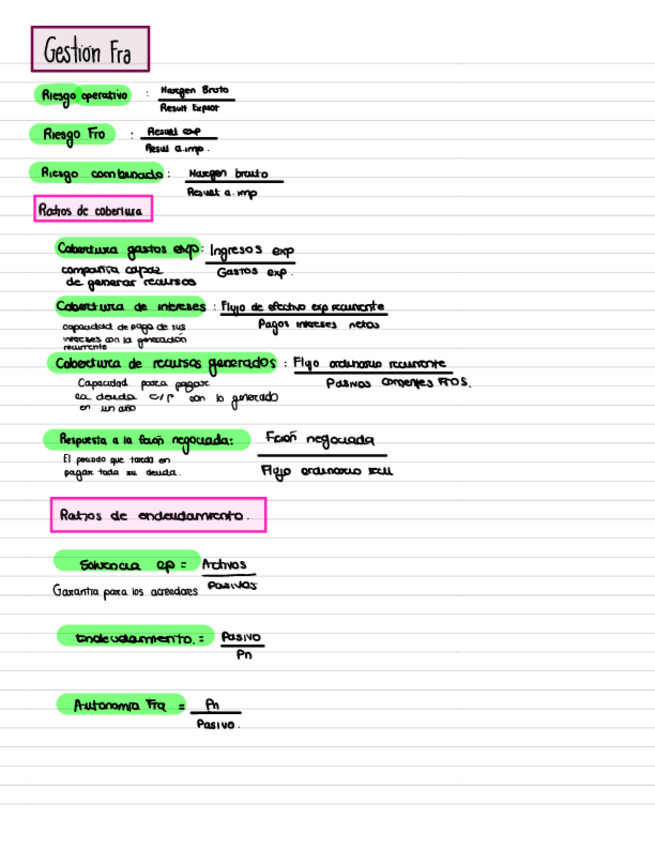 Gestión Fra
Riesgo operativo : Margen Bruto
Result Explot
Riesgo Fro : Result exp
Resul a.imp.
Riesgo combinado : Margen bruto
Result a. imp
Ratios de cobertura
Cobertura gastos exp: Ingresos exp
Gastos exp.
compañía capaz
de generar recursos
Cobertura de intereses : Flujo de efectivo exp recurrente
Pagos intereses netos
capacidad de pago de sus
intereses con la generación
recurrente
Cobertura de recursos generados : Flujo ordinario recurrente
Pasivos corrientes FROS.
Capacidad para pagar
la deuda c/p con lo generado
en un año
Respuesta a la negociada: negociada
Flujo ordinario
El periodo que tarda en
pagar toda su deuda.
Ratios de endeudamiento.
Solvencia ep = Activos
Pasivos
Garantía para los acreedores
Endeudamiento. = Pasivo
Pn
Autonomía Fra = Pn
Pasivo.